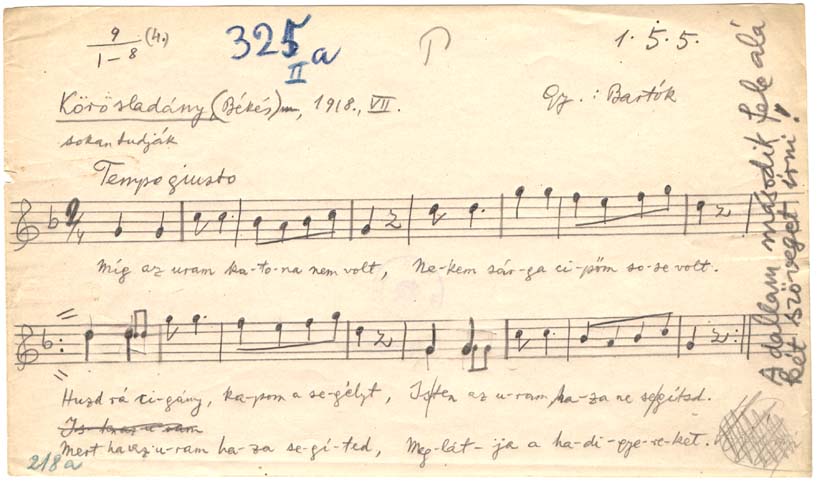 9/1-8 (4.)
325a
II
1. 5. 5.
Körösladány (Békés)m, 1918., VII.
Gy.: Bartók
sokan tudják
Tempo giusto
2/4
Míg az uram ka-to-na nem volt, Ne-kem sár-ga ci-pőm so-se volt.
Huzd rá ci-gány, ka-pom a se-gélyt, Isten az u-ram ha-za ne segítsd.
Mert ha az u-ram ha-za se-gí-ted, Meg-lát-ja a ha-di-gye-re-ket.
218a
A dallam második fele alá
két szöveget írni!